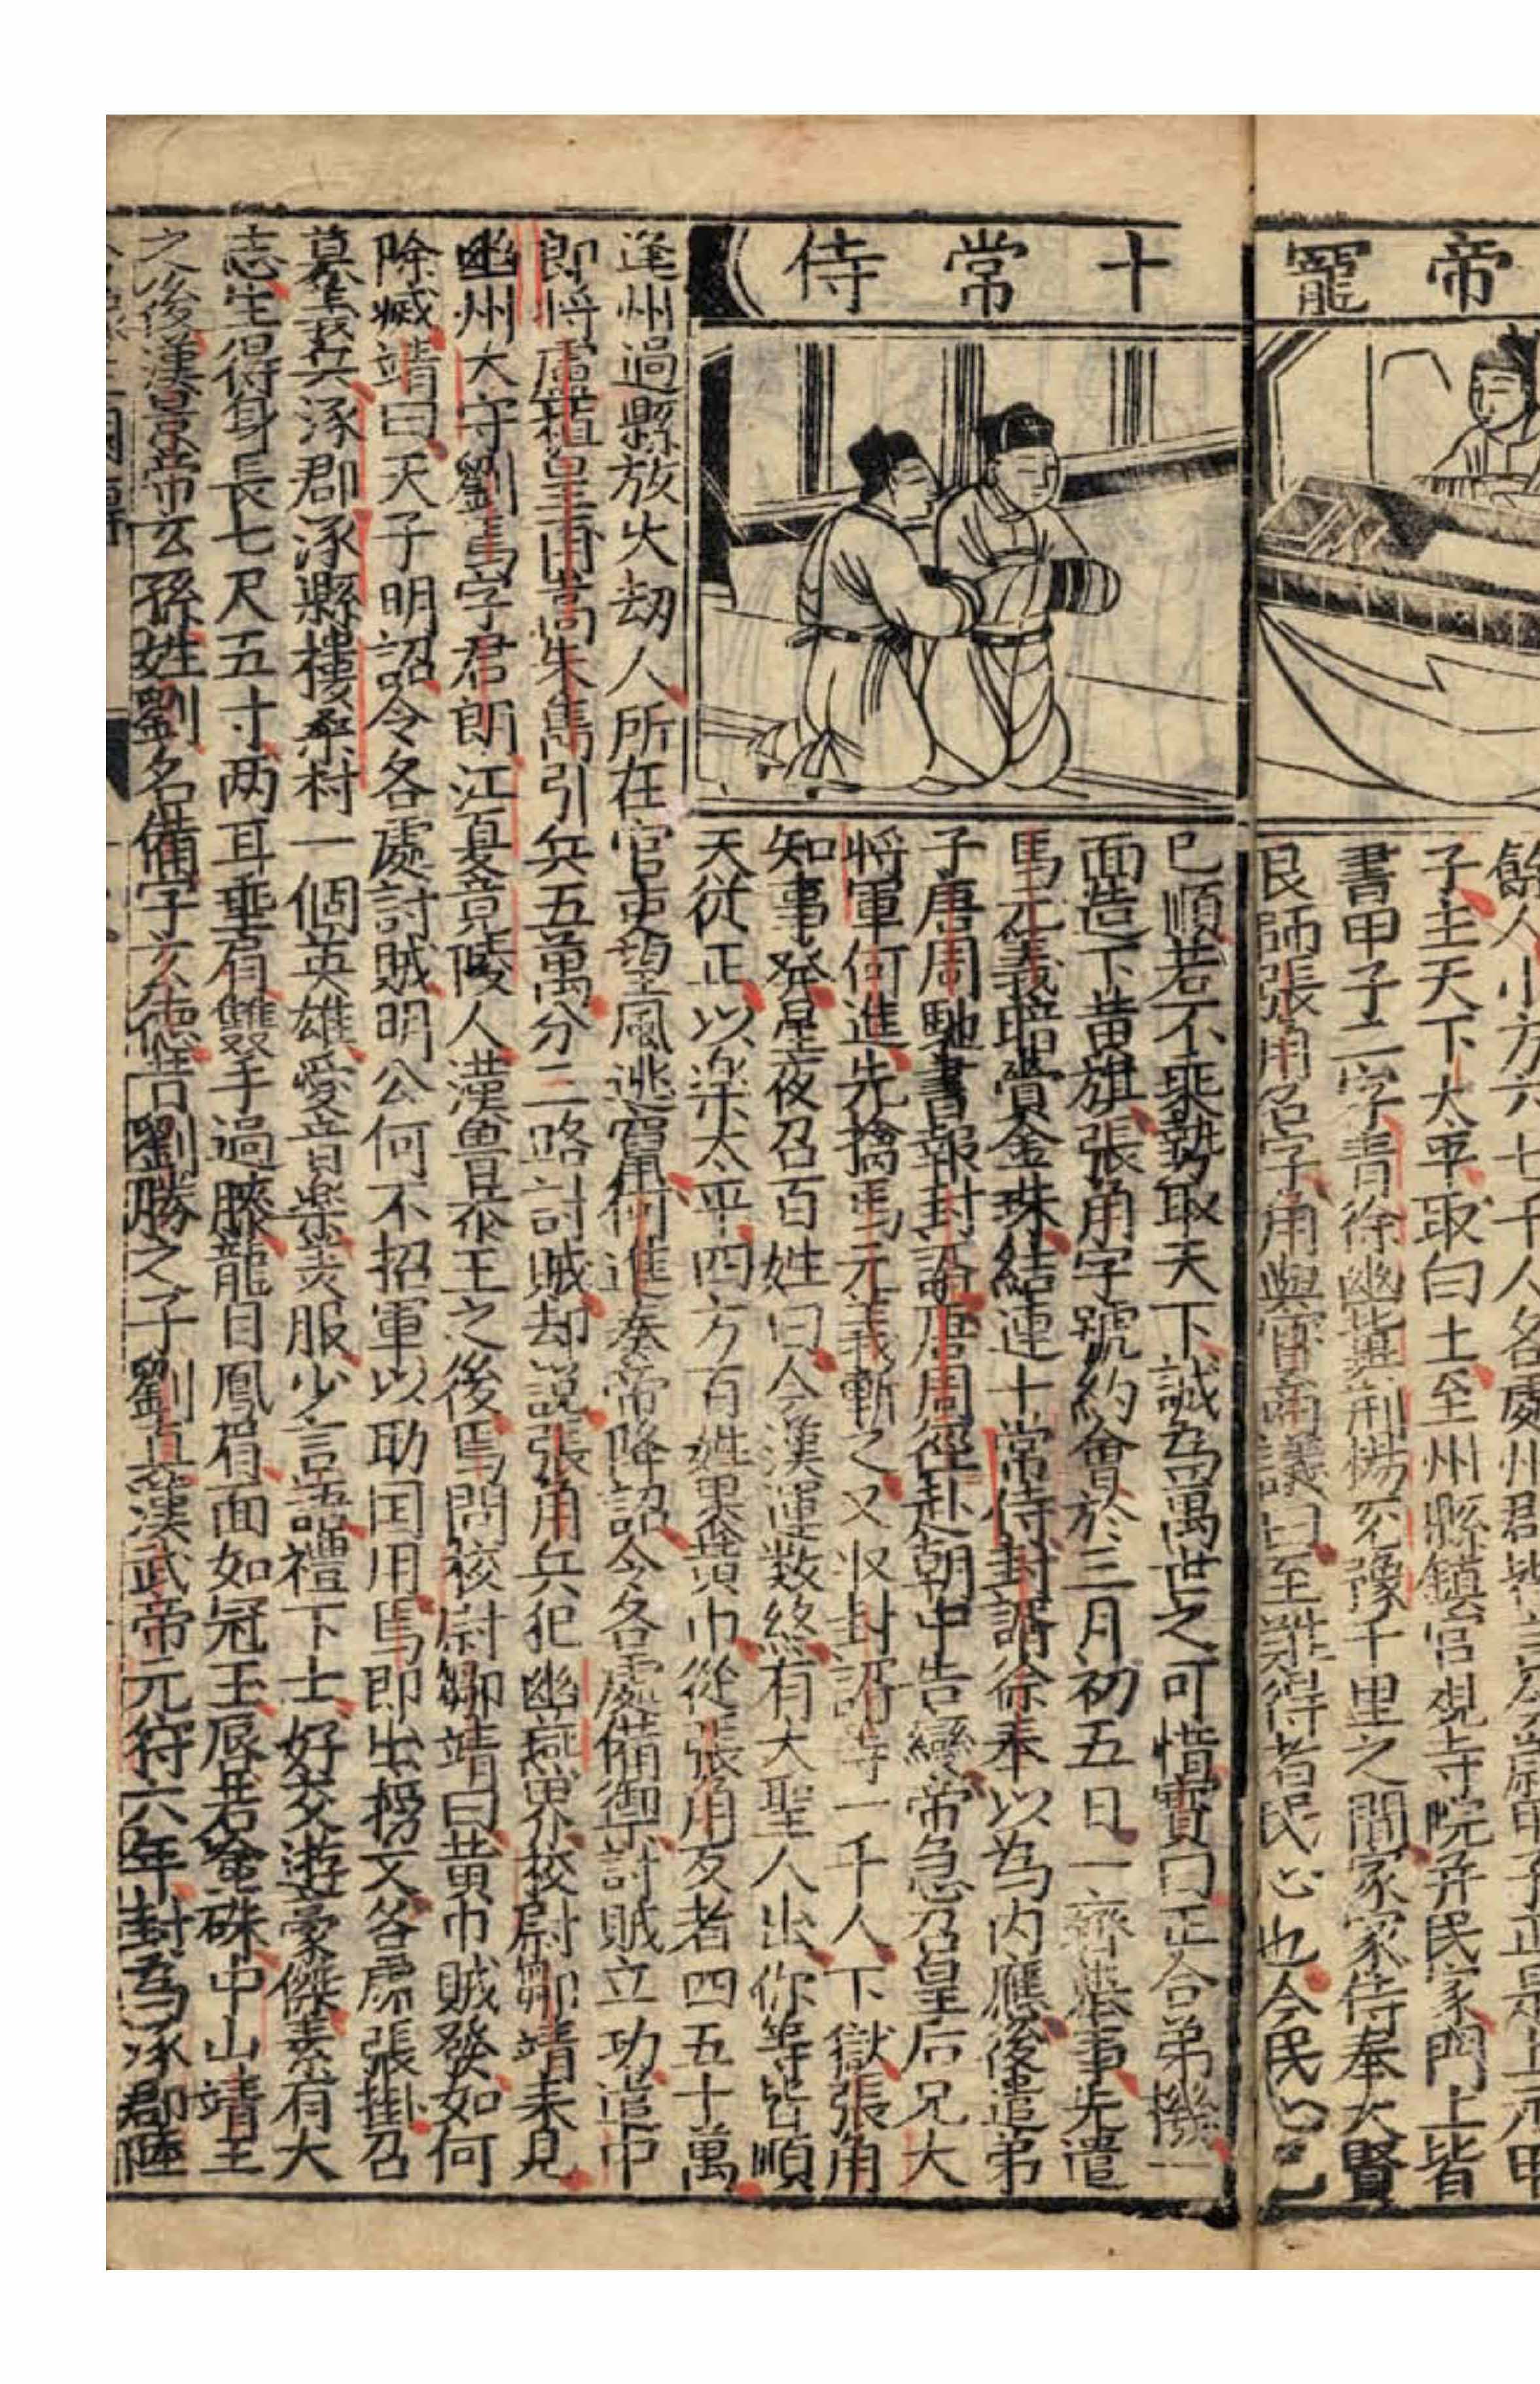 帝寵
十常侍
餘人小方六七千人各處州郡
子主天下大平取白土至州縣鎮官觀寺院并民家門上皆
書甲子二字青徐幽冀荊楊兖豫千里之間家家侍奉大賢
良師張角名字角與
議曰至難得者民心也今民心已
已順若不乘勢取天下誠為萬世之可惜寶曰正合弟機一
面造下黄旗張角字號約會於三月初五日一齊舉事先遣
馬元義暗賫金珠結連十常侍封諝徐奉以為内應後遣弟
子唐周馳書報封諝唐周徑赴朝中告變帝急召皇后兄大
將軍何進先擒馬元義斬之又收封諝等一千人下獄張角
知事發星夜召百姓曰今漢運数終有大聖人出你等皆順
天從正以楽太平四方百姓裹黄巾從張角反者四五十萬
逢州過縣放火刼人所在官吏望風逃竄何進奏帝降詔令各處備禦討賊立功遣中
郎將盧植皇甫嵩朱雋引兵五萬分三路討賊却説張角兵犯幽燕界校尉鄒靖来見
幽州大守劉焉字君朗江夏竟陵人漢魯恭王之後焉問校尉鄒靖曰黄巾賊發如何
除滅靖曰天子明詔令各處討賊明公何不招軍以助国用焉即出榜文各處張掛召
募義兵涿郡涿縣樓桑村一個英雄愛音楽美服少言語禮下士好交遊豪傑素有大
志生得身長七尺五寸两耳垂肩雙手過膝龍目鳳眉面如冠玉唇若塗硃中山靖王
之後漢景帝玄孫姓劉名備字玄德昔劉勝之子劉貞漢武帝元狩六年封為涿郡陸